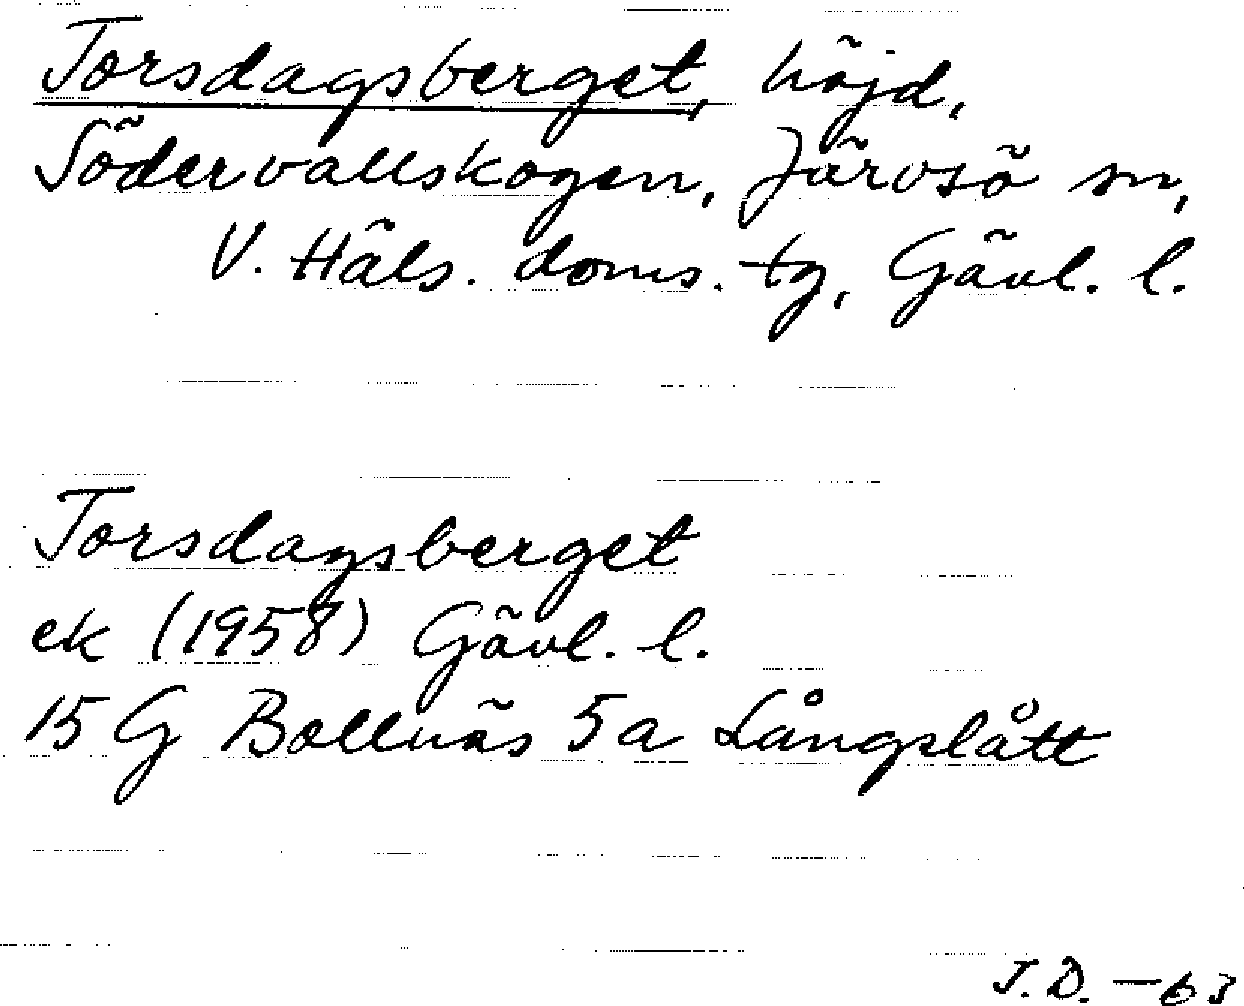 Torsdagsberget, höjd,
Södervallskogen, Järvsö sn,
V. Häls. doms. tg, Gävl. l.
Torsdagsberget
ek (1958) Gävl. l.
15 G Bollnäs 5a Långslått
J.D. –63